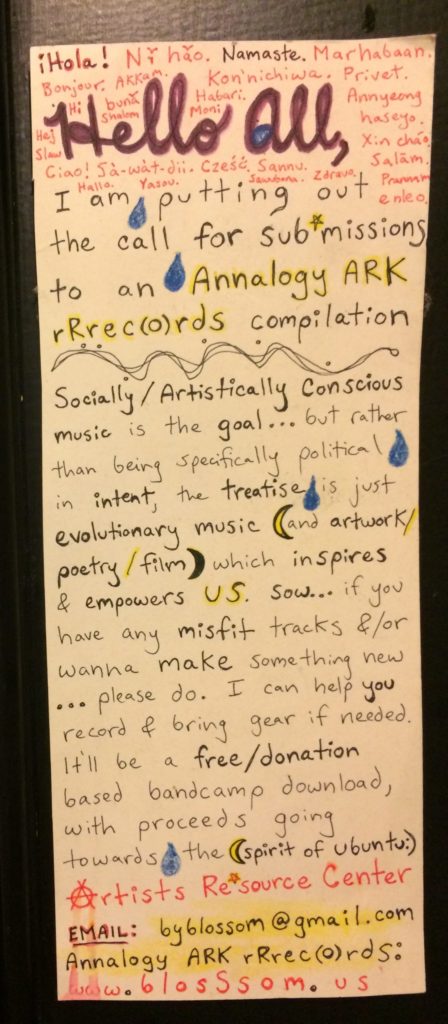 ¡Hola! Nǐ hǎo. Namaste. Marhabaan.
Bonjour. AKKam. Kon'nichiwa. Privet.
Hi bună Habari. Annyeong
Shalom Moni haseyo.
Hej Hello All, Xin cháo
Slaw Salām.
Ciao! Sà-wàt-dii. Cześć. Sannu. Prannam
Hallo. Yasou. Sawubona. Zdravo. enleo.
I am putting out
the call for sub*missions
to an Annalogy ARK
rRrec(o)rds compilation
Socially/Artistically Conscious
music is the goal... but rather
than being specifically political
in intent, the treatise is just
evolutionary music (and artwork/
poetry/film) which inspires
& empowers US. sow... if you
have any misfit tracks &/or
wanna make something new
... please do. I can help you
record & bring gear if needed.
It'll be a free/donation
based bandcamp download,
with proceeds going
towards the (spirit of ubuntu:)
Artists Re*source Center
EMAIL: byblossom@gmail.com
Annalogy ARK rRrec(o)rds:
www.blosSsom.us